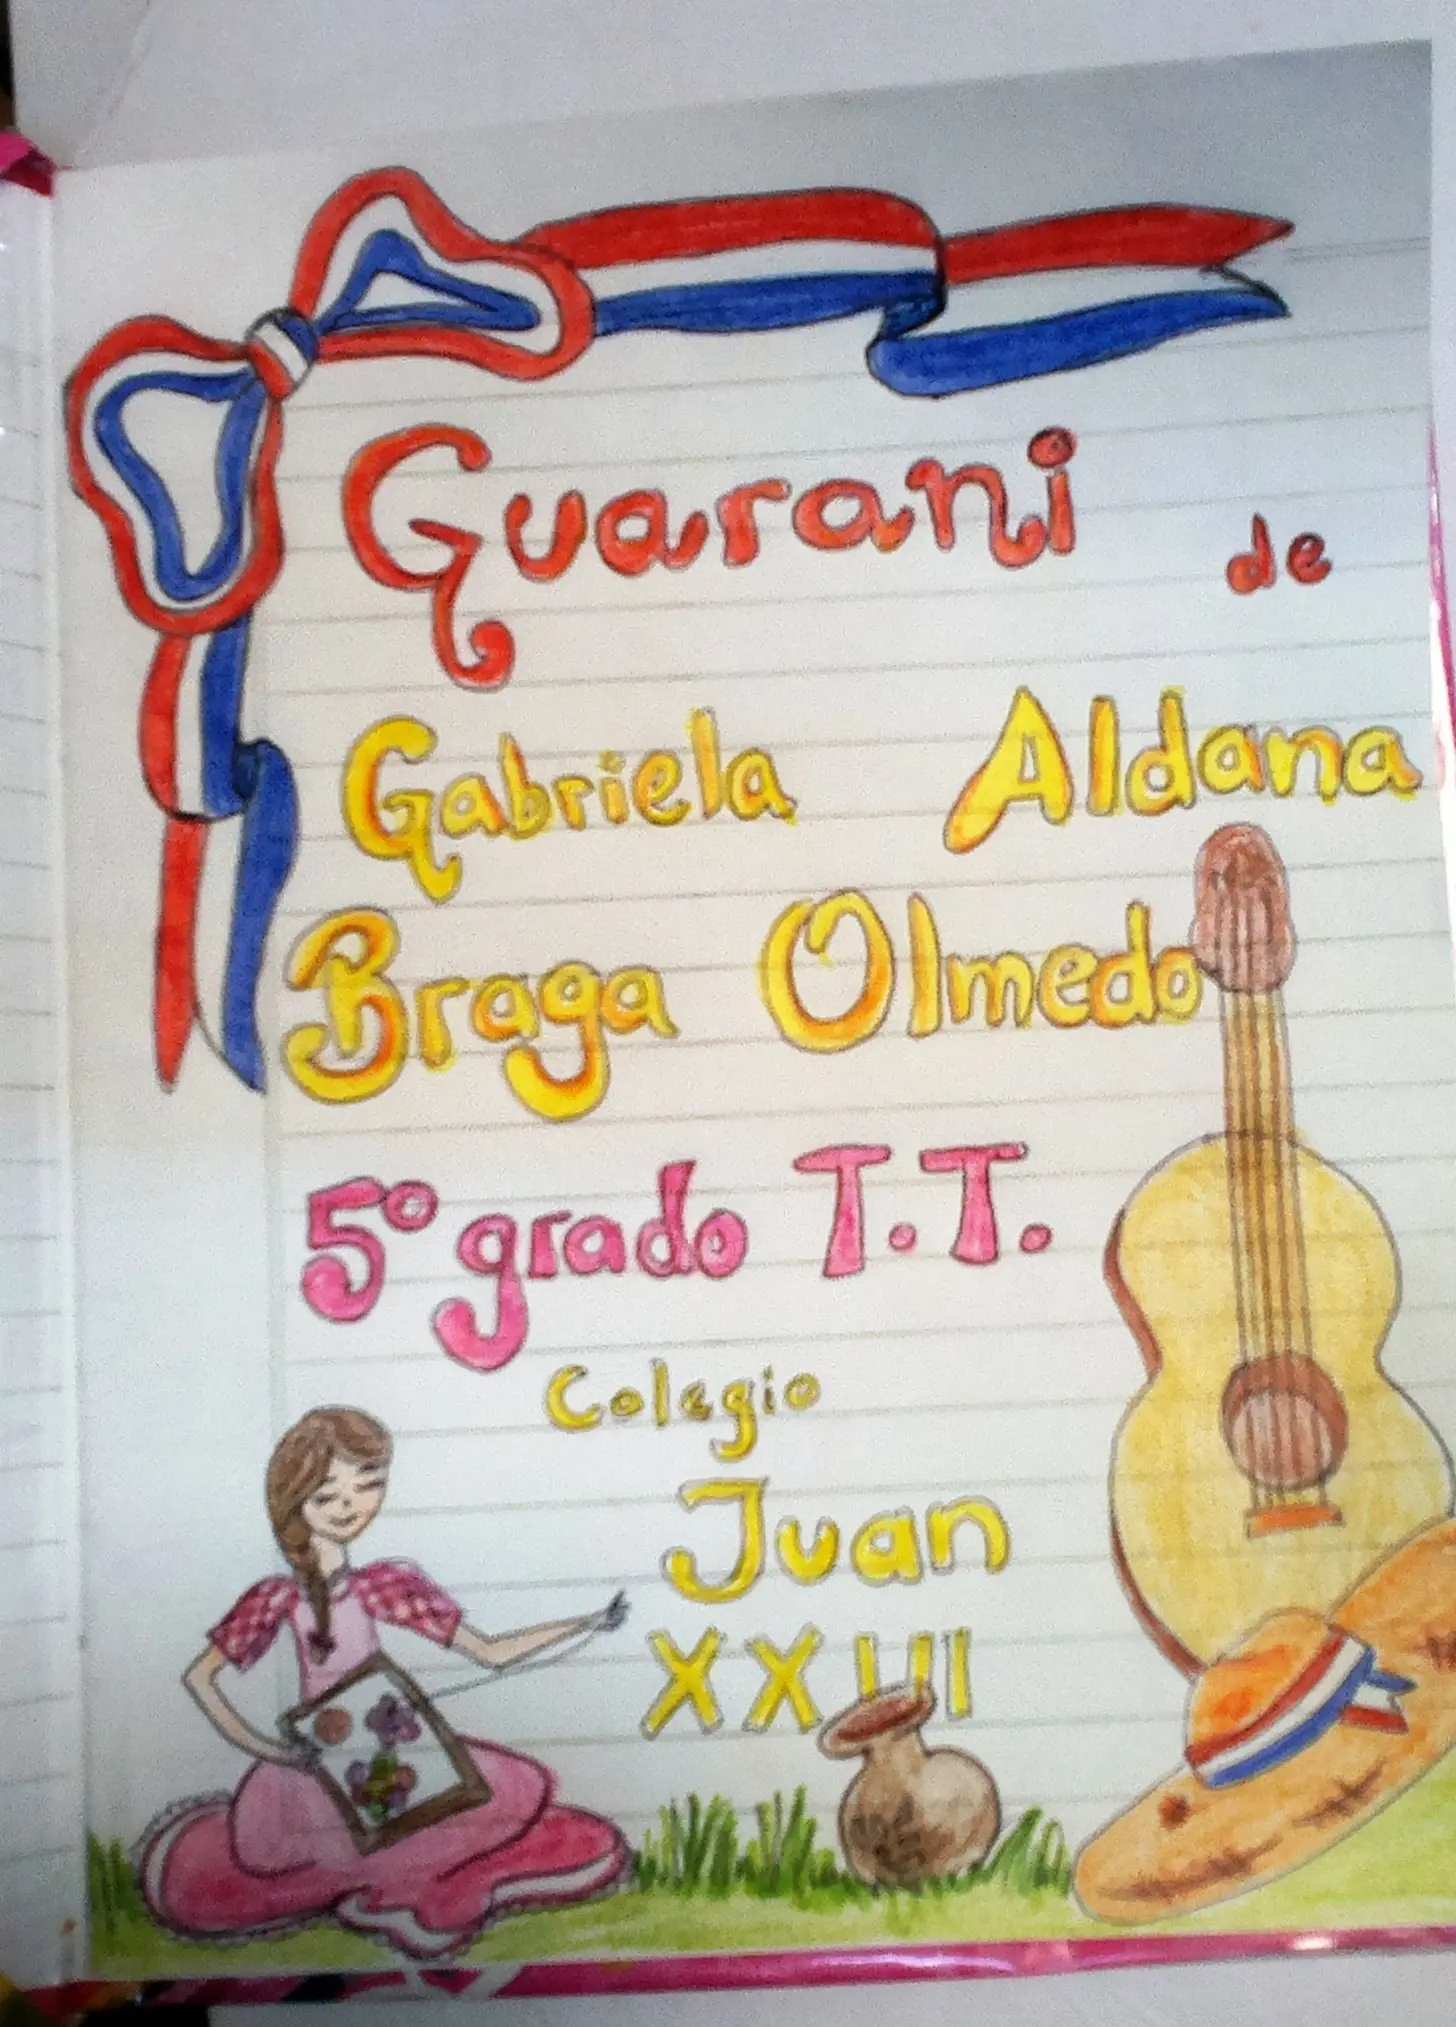 Guarani de
Gabriela Aldana
Braga Olmedo
5° grado T.T.
Colegio
Juan
XXIII